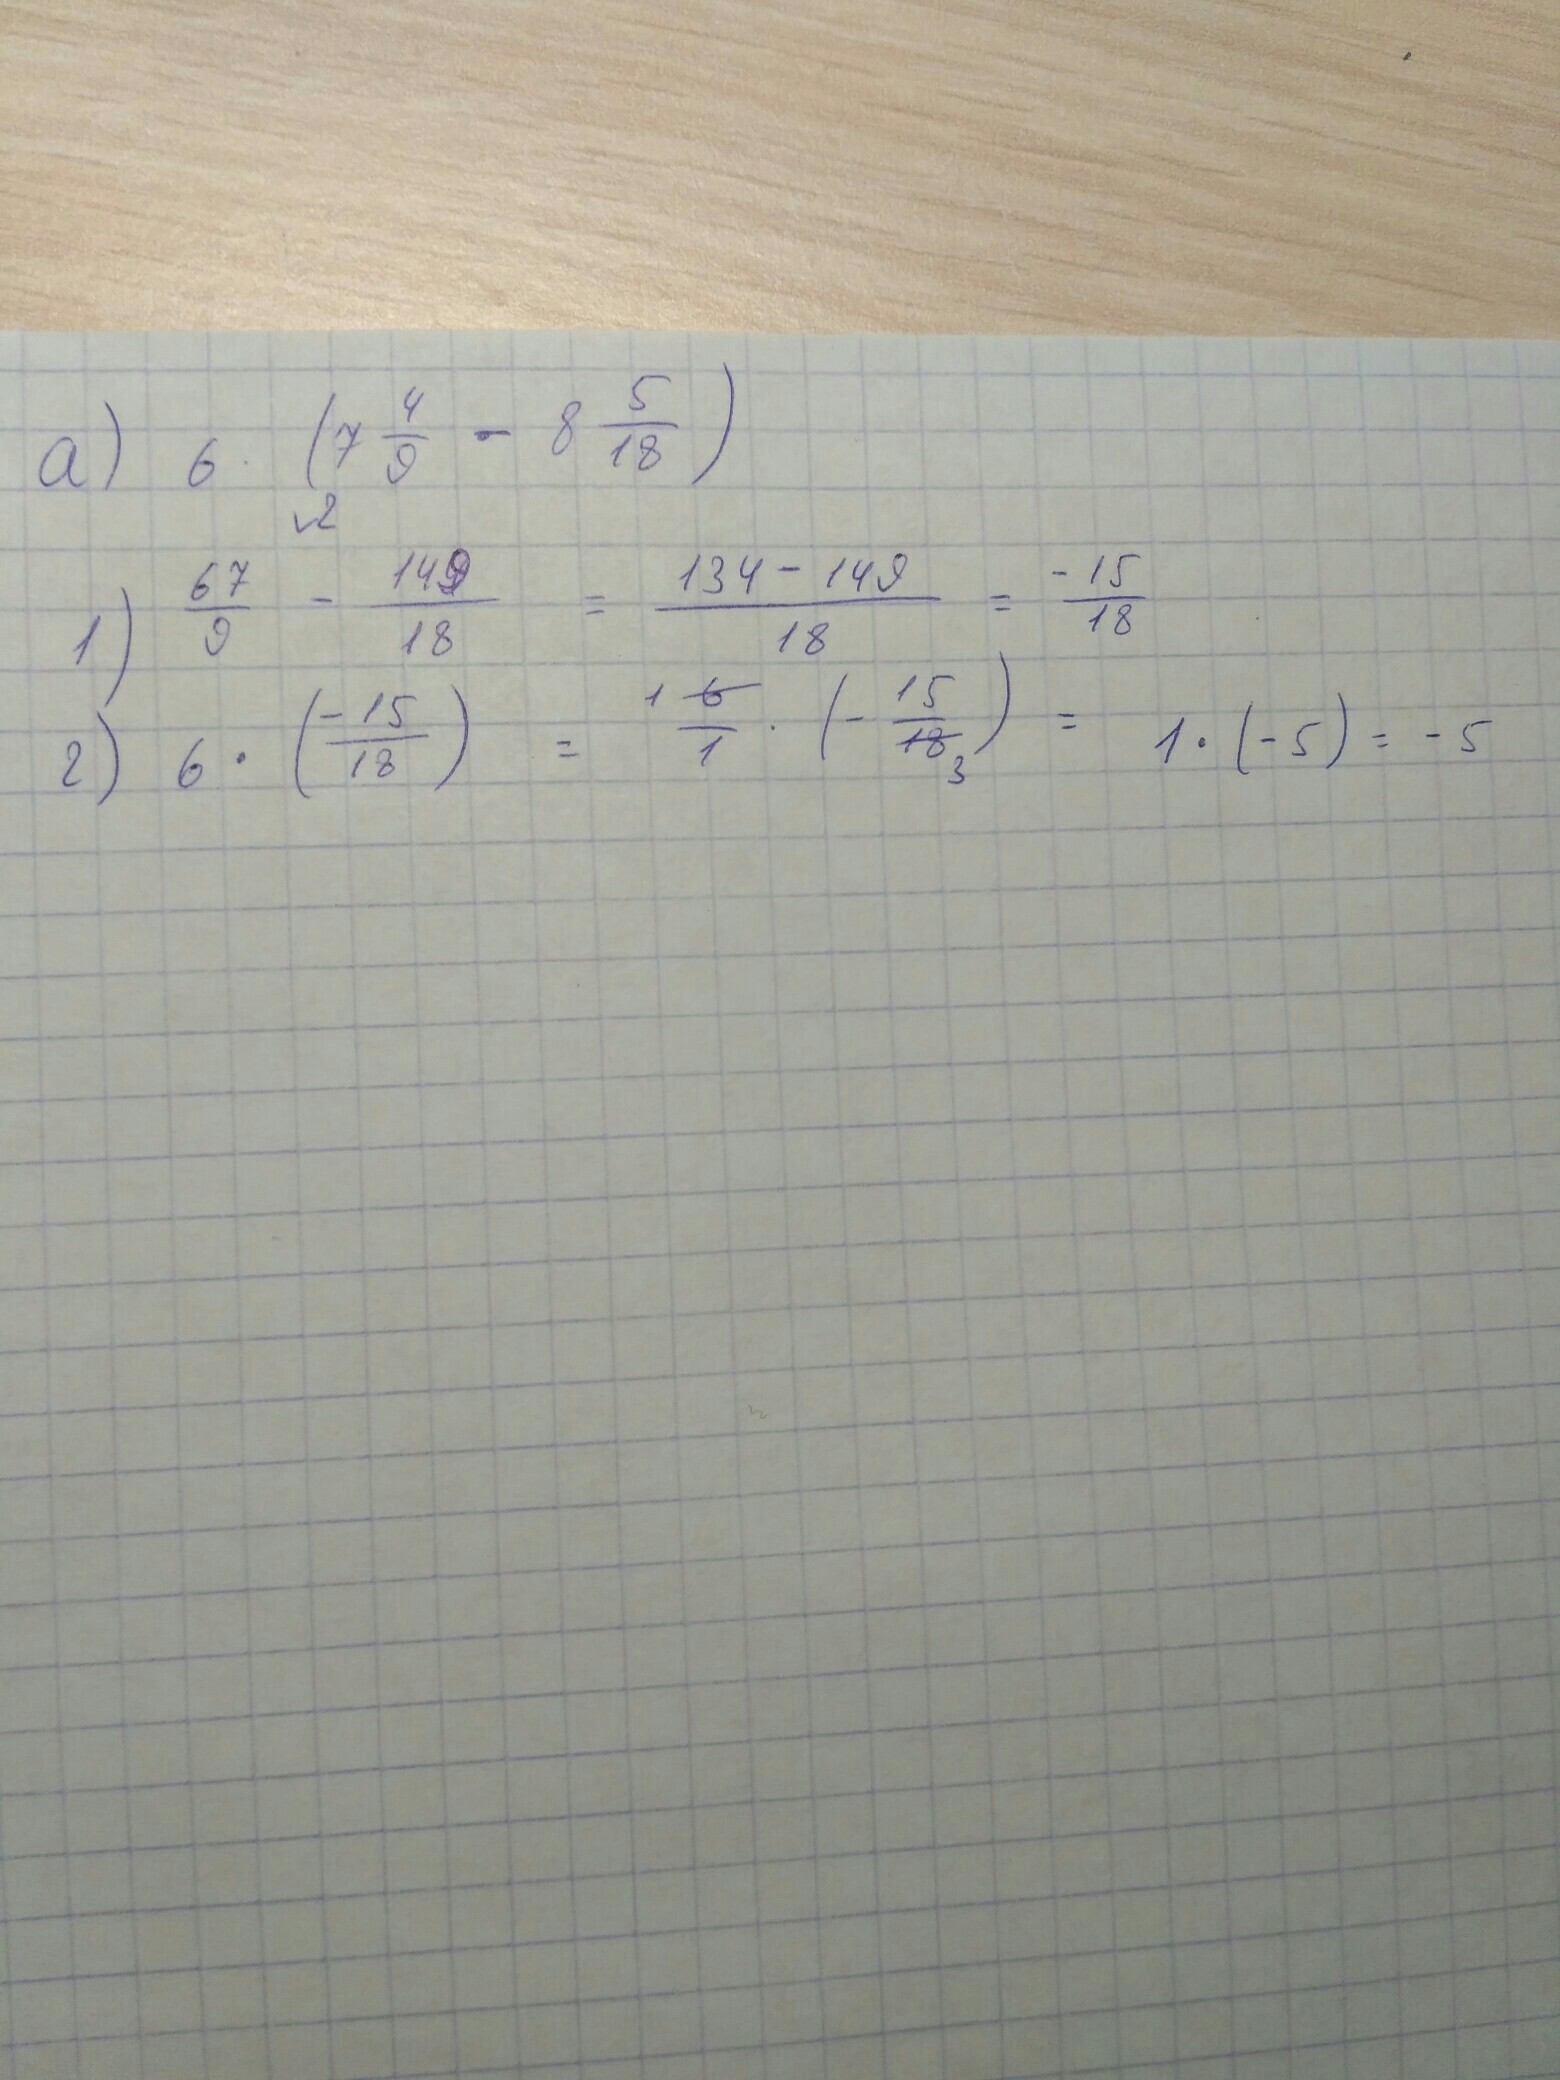 а) 6 · (7 4/9 - 8 5/18)
1) 67/9 \2 - 149/18 = 134 - 149/18 = -15/18
2) 6 · (-15/18) = 1 6/1 · (- 15/18 3) = 1 · (-5) = -5